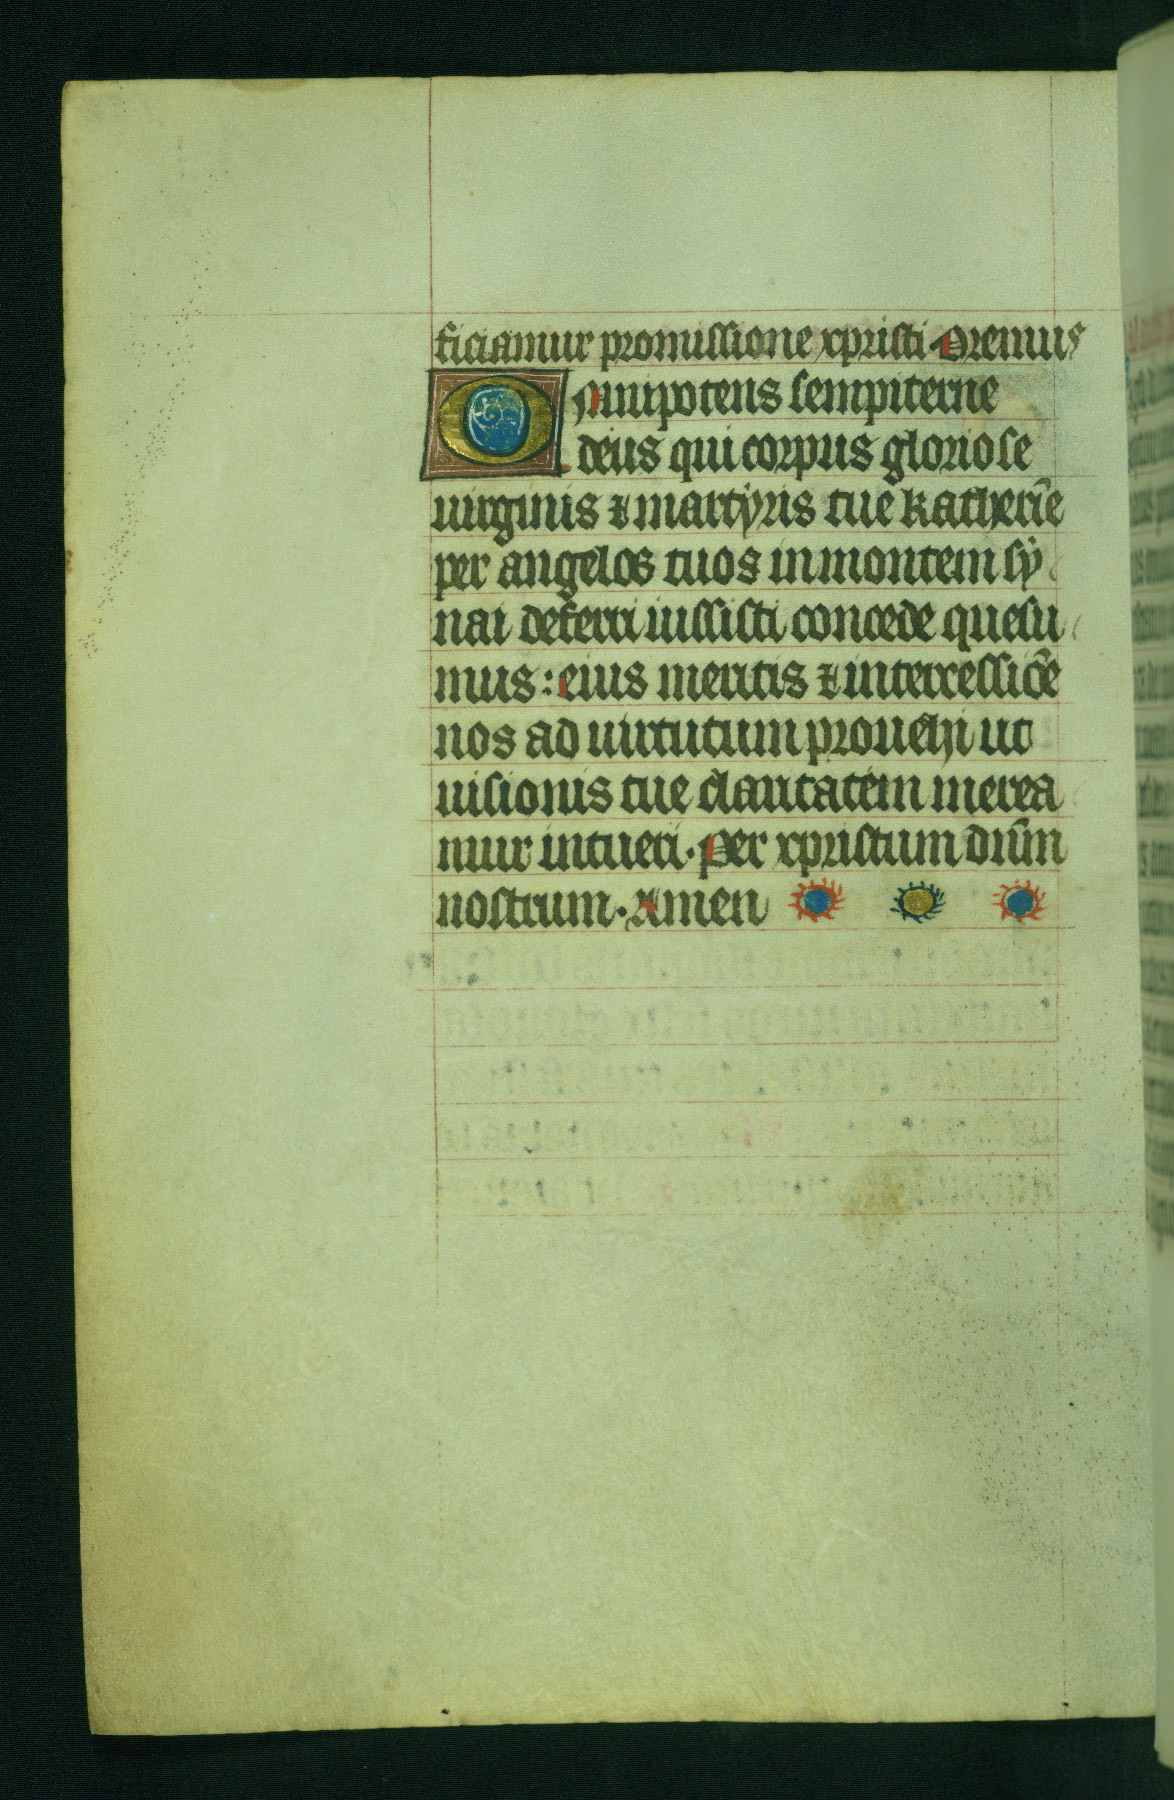 ficiamur promissione xpristi. Oremus
Omnipotens sempiterne
deus qui corpus gloriose
uirginis & martyris tue katherīe
per angelos tuos in montem sy
nai deferri iussisti concede quesu
mus: eius meritis & intercessiōe
nos ad uirtutum prouehi ut
uisionis tue claritatem merea
mur intueri. Per xpristum dn̄m
nostrum. Amen